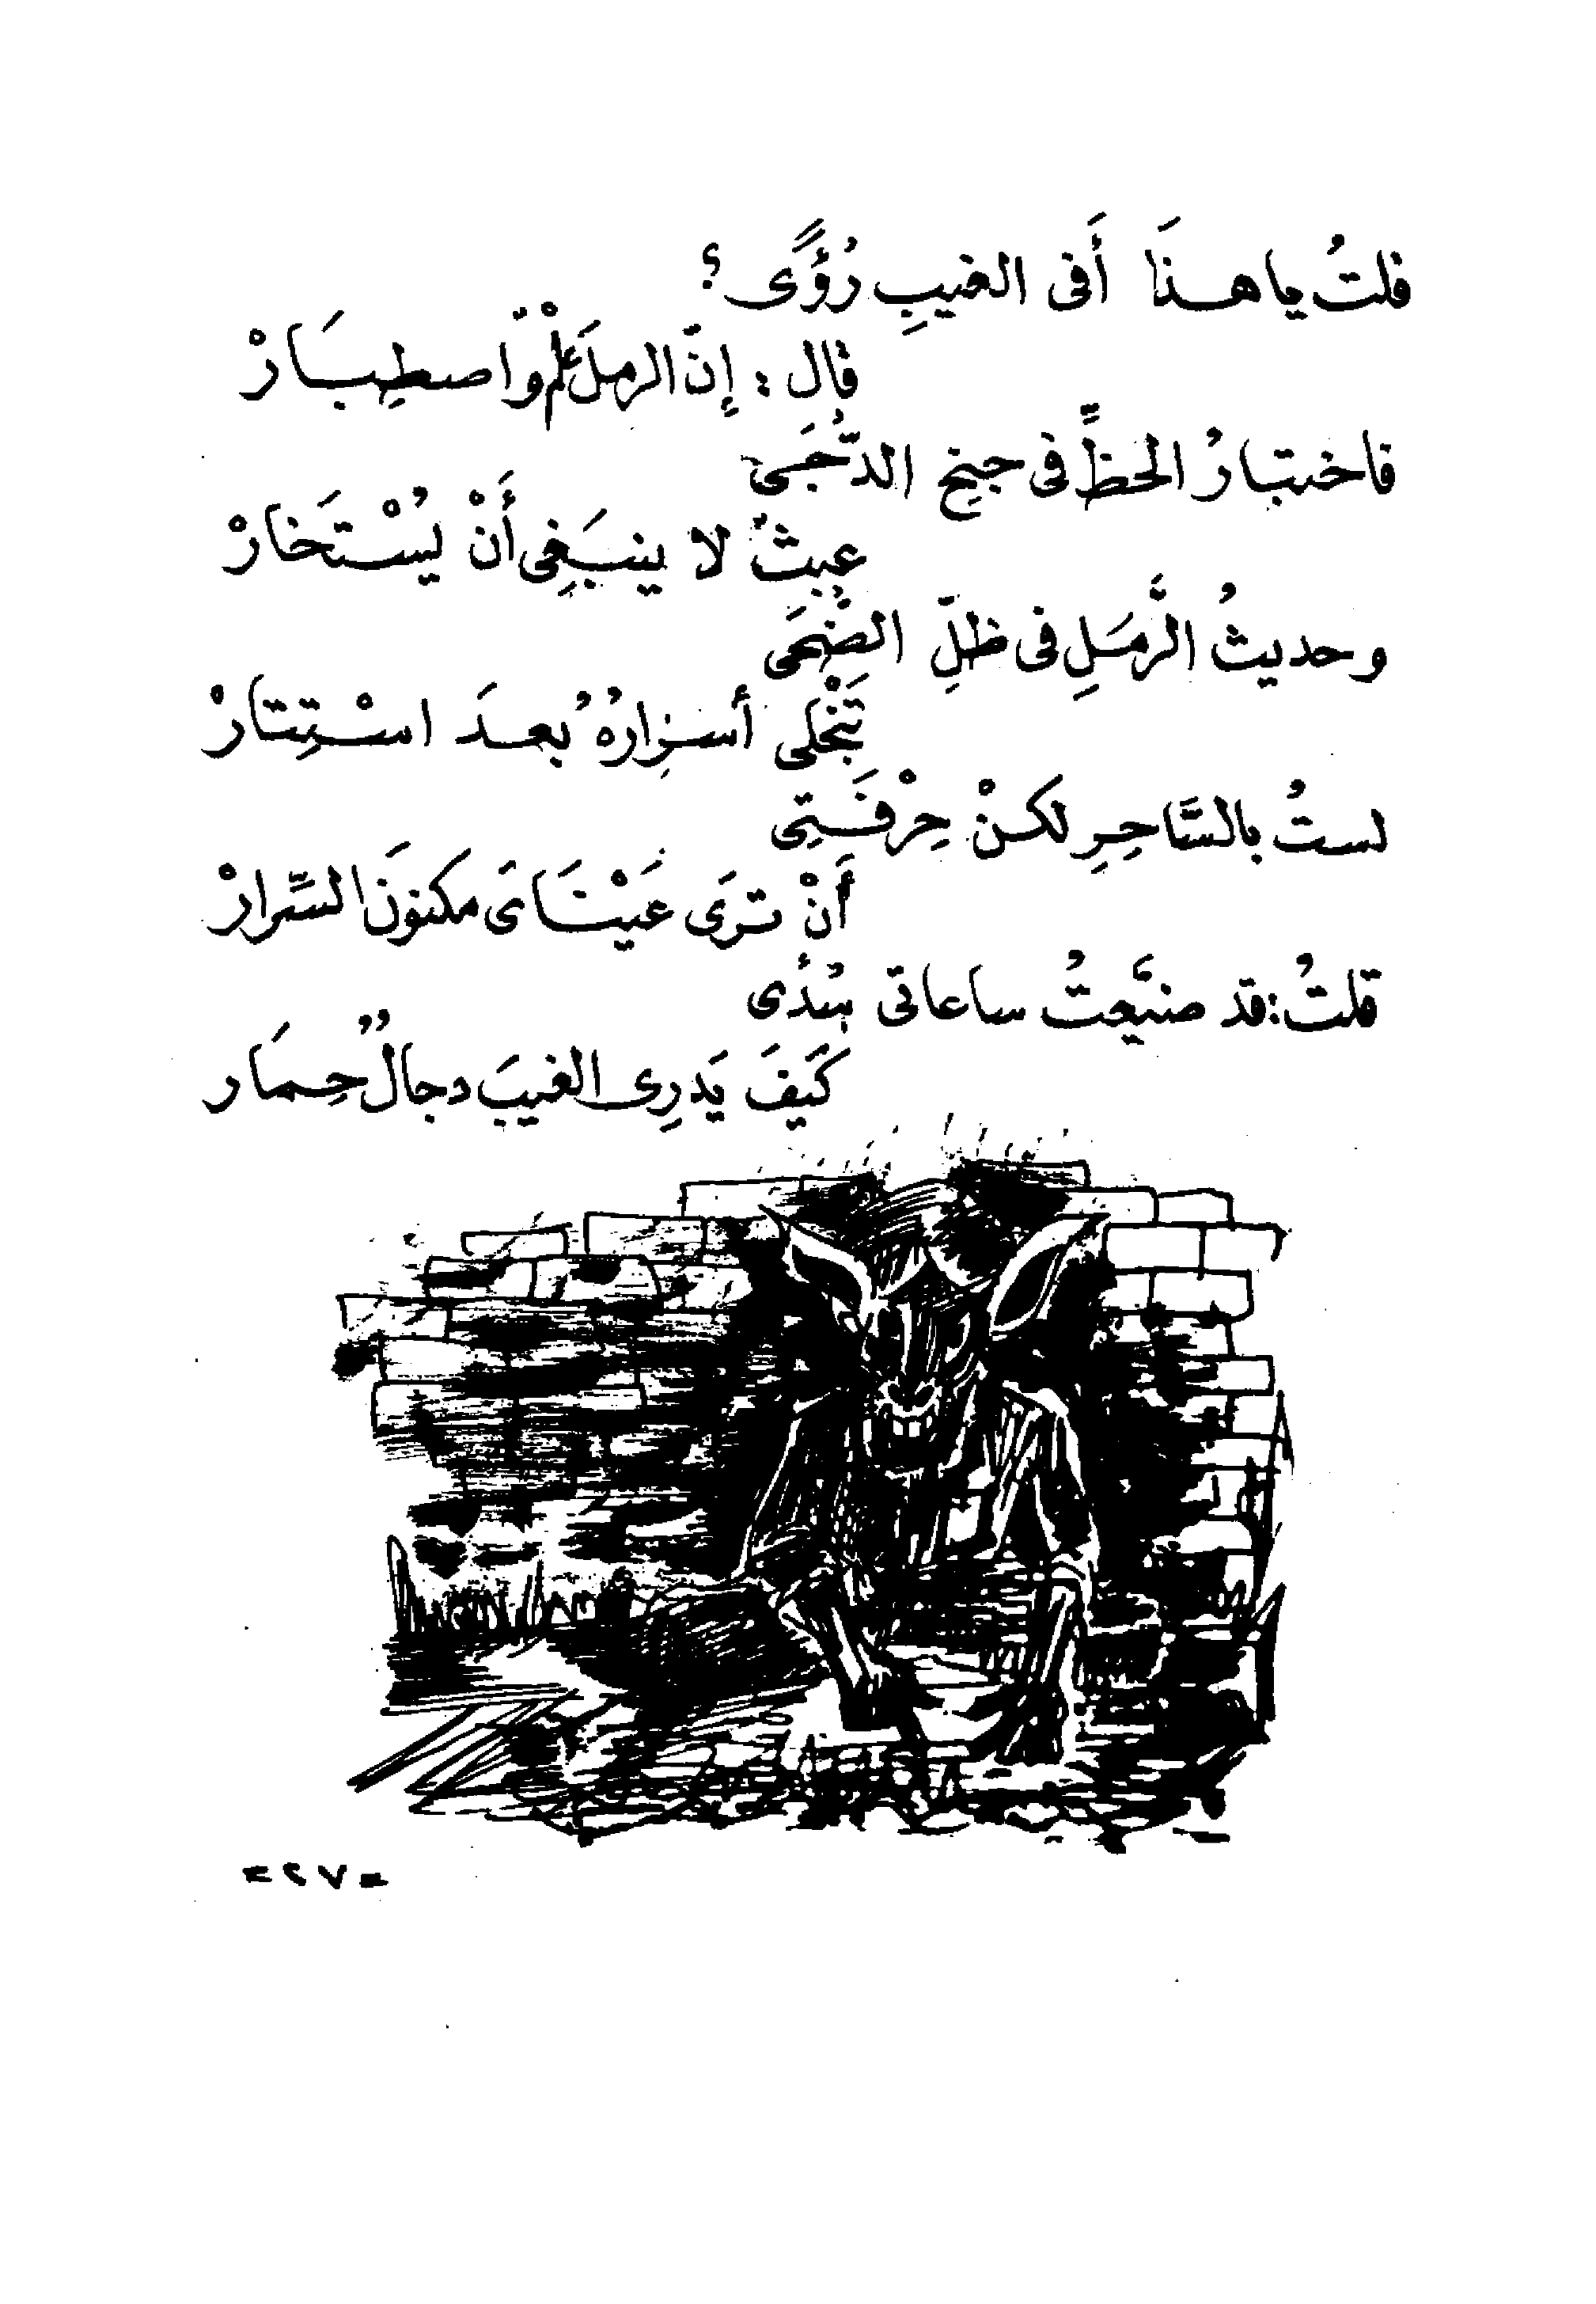 قلتُ يا هذَا أَفى الغيبِ رُؤًى ؟
قال : إِنّ الرملَ علْمٌ واصطِبَارْ
فاختبارُ الحظِّ فى جنحِ الدُّجَى
عبثٌ لا ينبَغِى أَنْ يُسْتَخارْ
وحديثُ الرَّمَلِ فى ظلِّ الضُّحَى
تَنْجَلى أسرارُهُ بعدَ اسْتِتارْ
لستُ بالسَّاحِرِ لكنْ حِرْفَتِى
أَنْ ترَى عَيْنَاىَ مكنونَ السِّرارْ
قلتُ : قد ضيَّعتُ ساعاتى سُدًى
كَيفَ يَدرِى الغيبَ دجالُ حِمَار
-٢٧-